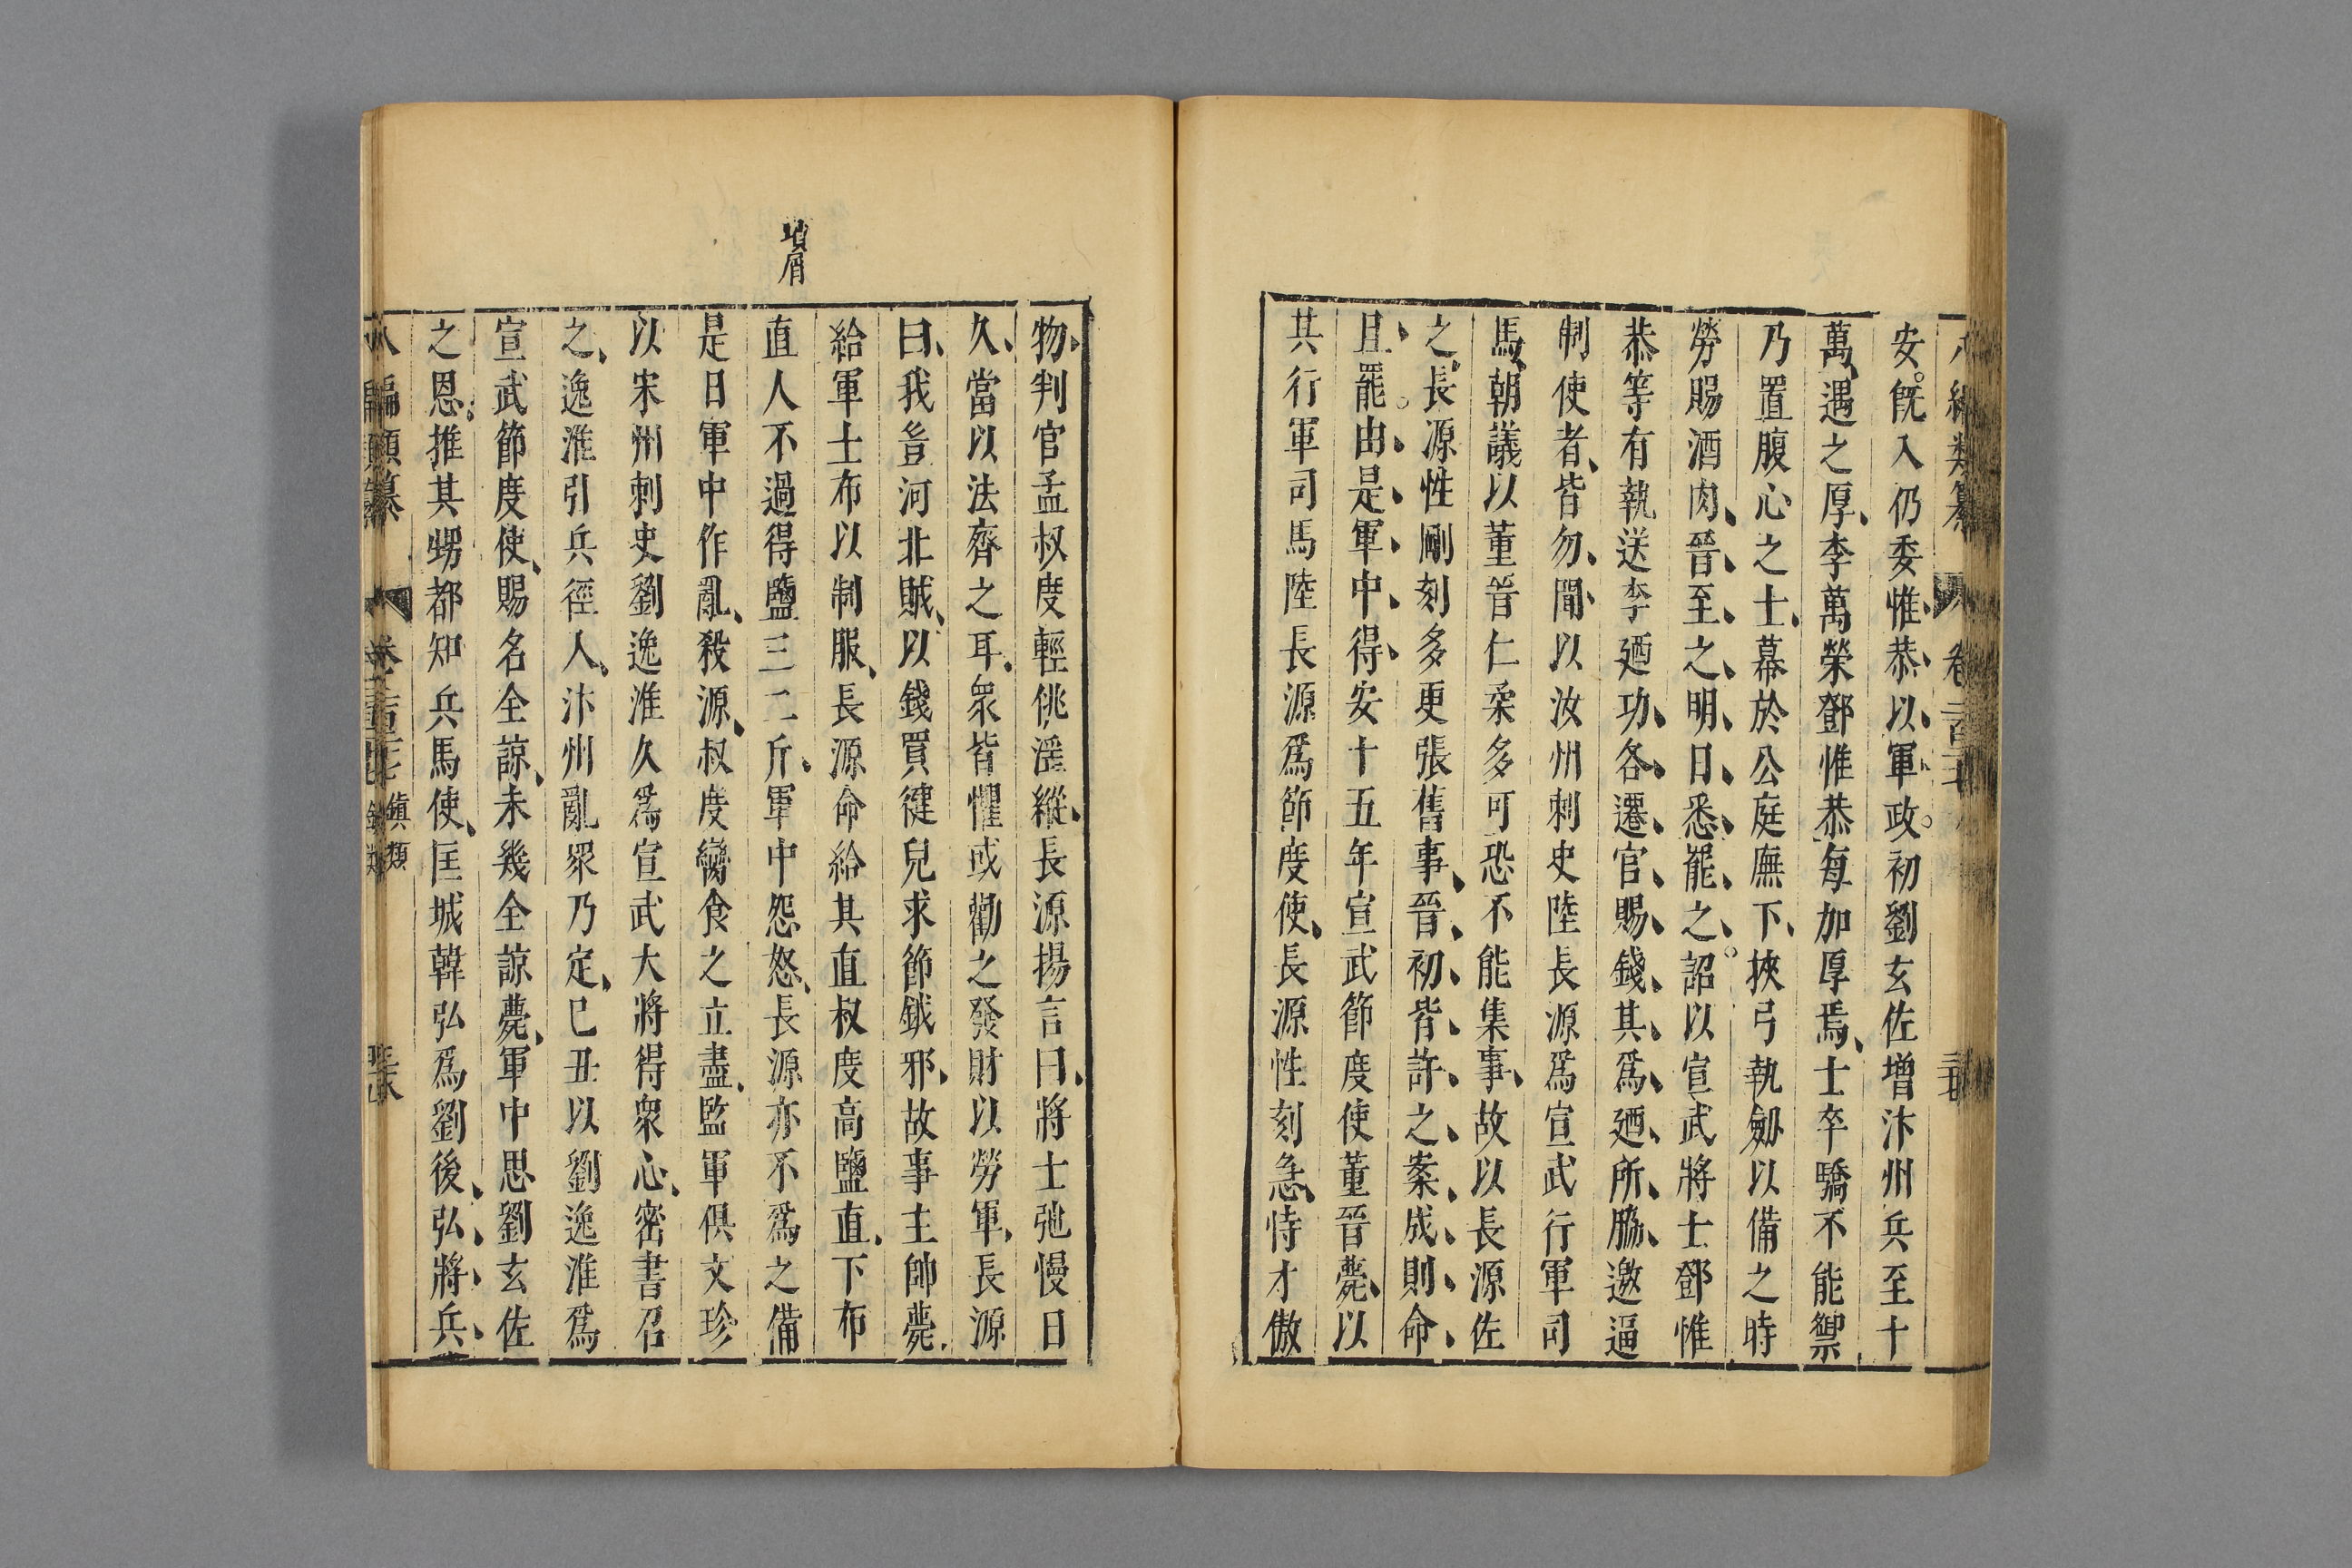 安。旣入仍委惟恭以軍政。初劉玄佐增汴州兵至十
萬、遇之厚、李萬榮鄧惟恭每加厚焉、士卒驕不能禦
乃置腹心之士、幕於公庭廡下、挾弓執劒以備之時
勞賜酒肉、晉至之明日悉罷之。詔以宣武將士鄧惟
恭等有執送李廼功、各遷官賜錢、其爲廼所脇邀逼
制使者、皆勿問、以汝州刺史陸長源爲宣武行軍司
馬、朝議以董晉仁柔多可恐不能集事、故以長源佐
之、長源性剛刻多更張舊事、晉初皆許之、案成則命
且罷。由是軍中得安十五年宣武節度使董晉薨、以
其行軍司馬陸長源爲節度使、長源性刻急、恃才傲
物、判官孟叔度輕佻淫縱、長源揚言曰、將士弛慢日
久、當以法齊之耳、衆皆懼或勸之發財以勞軍、長源
曰、我豈河北賊、以錢買健兒求節鉞邪、故事主帥薨
給軍士布以制服、長源命給其直叔度高鹽直、下布
直人不過得鹽三二斤、軍中怨怒、長源亦不爲之備
是日軍中作亂、殺源、叔度臠食之立盡、監軍俱文珍
以宋州刺史劉逸淮久爲宣武大將得衆心、密書召
之、逸淮引兵徑入、汴州亂衆乃定、已丑以劉逸淮爲
宣武節度使、賜名全諒、未幾全諒薨、軍中思劉玄佐
之恩、推其甥都知兵馬使、匡城韓弘爲劉後、弘將兵、
八編類纂
鎭類
瑣屑